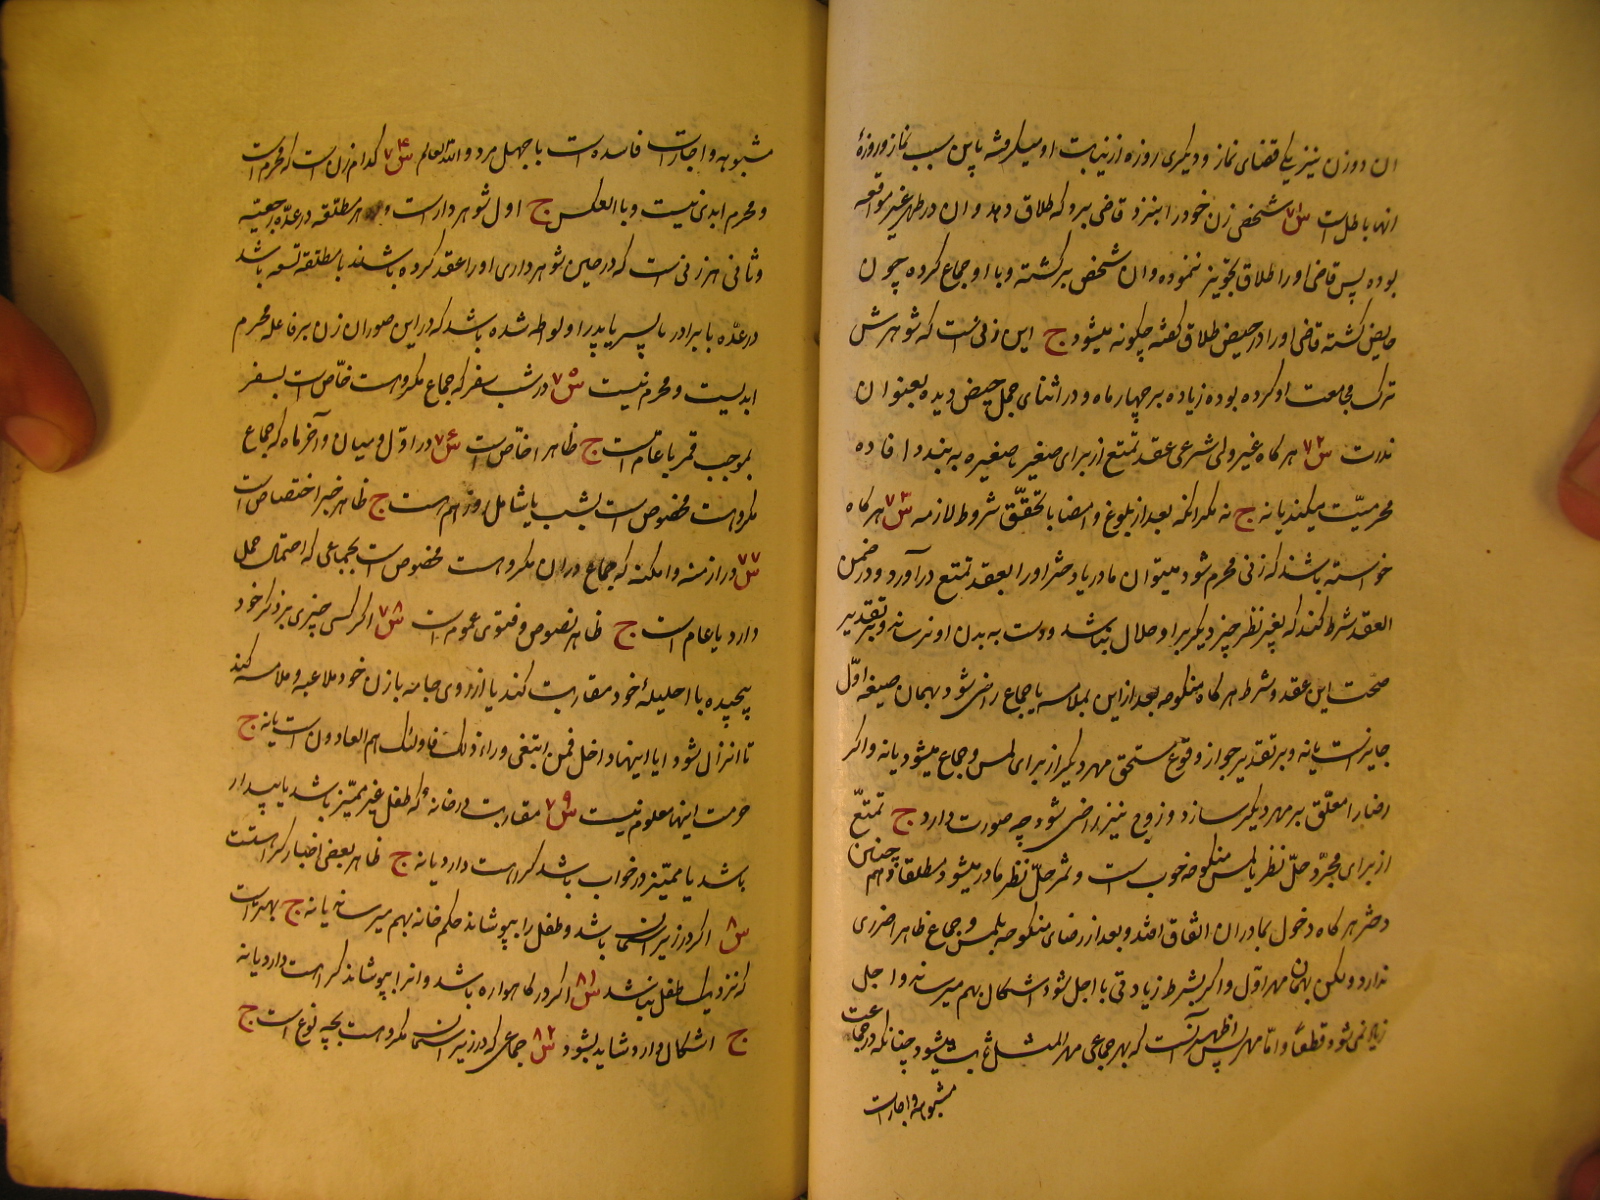 ان دو زن نیز یکی قضای نماز و دیگری روزه از نیابت او میکرفته پس بسبب نماز و روزهٔ
انها باطل است س۷۱ شخصی زن خود را بنزد قاضی برد که طلاق دهد و ان در طهر غیر مواقعه
بوده پس قاضی او را طلاق تجویز ننموده و ان شخص برکشته و با او جماع کرده چون
حایض کشته قاضی او را در حیض طلاق کفته چکونه میشود ج این زنی است که شوهرش
ترک مجامعت او کرده بوده زیاده بر چهار ماه و در اثنای حمل حیض دیده بعنوان
ندرت س۷۲ هر کاه غیر ولی شرعی عقد تمتع از برای صغیر یا صغیره به بندد افاده
محرمیّت میکند یا نه ج نه مکر انکه بعد از بلوغ و امضا با تحقّق شروط لازمه س۷۳ هر کاه
خواسته باشند که زنی محرم شود میتوان مادر یا دختر او را بعقد تمتع در آورد و در ضمن
العقد شرط کنند که بغیر نظر چیز دیکر بر او حلال نباشد و دست به بدن او نرساند و بر تقدیر
صحت این عقد و شرط هر کاه منکوحه بعد از این بملامسه یا جماع راضی شود بهمان صیغه اوّل
جایز است یا نه و بر تقدیر جواز و وقوع مستحق مهر دیکر از برای لمس و جماع میشود یا نه و اکر
رضا را معلّق بر مهر دیکر سازد و زوج نیز راضی شود چه صورت دارد ج تمتعّ
از برای مجرّد حلّ نظر یا لمس منکوحه خوب است و ثمر حلّ نظر مادر میشود مطلقا و هم چنین
دختر هر کاه دخول بمادر ان اتفاق افتد و بعد از رضای منکوحه بلمس و جماع ظاهرا ضرری
ندارد ولکن بهمان مهر اوّل و اکر بشرط زیادتی با اجل شود اشکال بهم میرساند و اجل
زیاد نمی شود قطعاً و امّا مهر پس اظهر آنست که بهر جماعی مهر المثل ثابت میشود چنانکه در جماعت
مشبوهه و اجارات
مشبوهه و اجارات فاسده است با جهل مرد و الله یعالم س۷۴ کدام زن است که محرم است
و محرم ابدی نیست و با العکس ج اول شوهردار است و هر مطلقه در عدّه رجعیّه
و ثانی هر زنی است که در حین شوهرداری او را عقد کرده باشند یا مطلقه تسعه باشد
در عدّه یا برادر یا پسر یا پدر او لوطه شده باشد که در این صور ان زن بر فاعل محرم
ابدیست و محرم نیست س۷۵ در شب سفر که جماع مکروهست خاصّ است بسفر
بموجب قمر یا عامّ است ج ظاهرا خاصّ است س۷۶ در اوّل و میان و آخر ماه که جماع
مکروهست مخصوص است بشب یا شامل روز هم است ج ظاهر خبر اختصاص است
س۷۷ در ازمنه و امکنه که جماع در ان مکروهست مخصوص است بجماعی که احتمال حمل
دارد یا عام است ج ظاهر نصوص و فتوی عموم است س۷۸ اکر کسی چیزی بر ذکر خود
پیچیده با حلیلهٔ خود مقاربت کند یا از روی جامه با زن خود ملاعبه و ملامسه کند
تا انزال شود ایا اینها داخل فمن ابتغی وراء ذلک فاولئک هم العادون است یا نه ج
حرمت اینها معلوم نیست س۷۹ مقاربت در خانهٔ که طفل غیر ممیّز باشد یا بیدار
باشد یا ممیّز در خواب باشد کراهت دارد یا نه ج ظاهر بعضی اخبار کراهتست
س۸۰ اکر در زیر اسمان باشد و طفل را بپوشاند حکم خانه بهم میرساند یا نه ج بهتر است
که نزدیک طفل نباشد س۸۱ اکر در کاهواره باشد و انرا بپوشاند کراهت دارد یا نه
ج اشکال دارد شاید بشود س۸۲ جماعی که در زیر اسمان مکروهست بچه نوع است ج